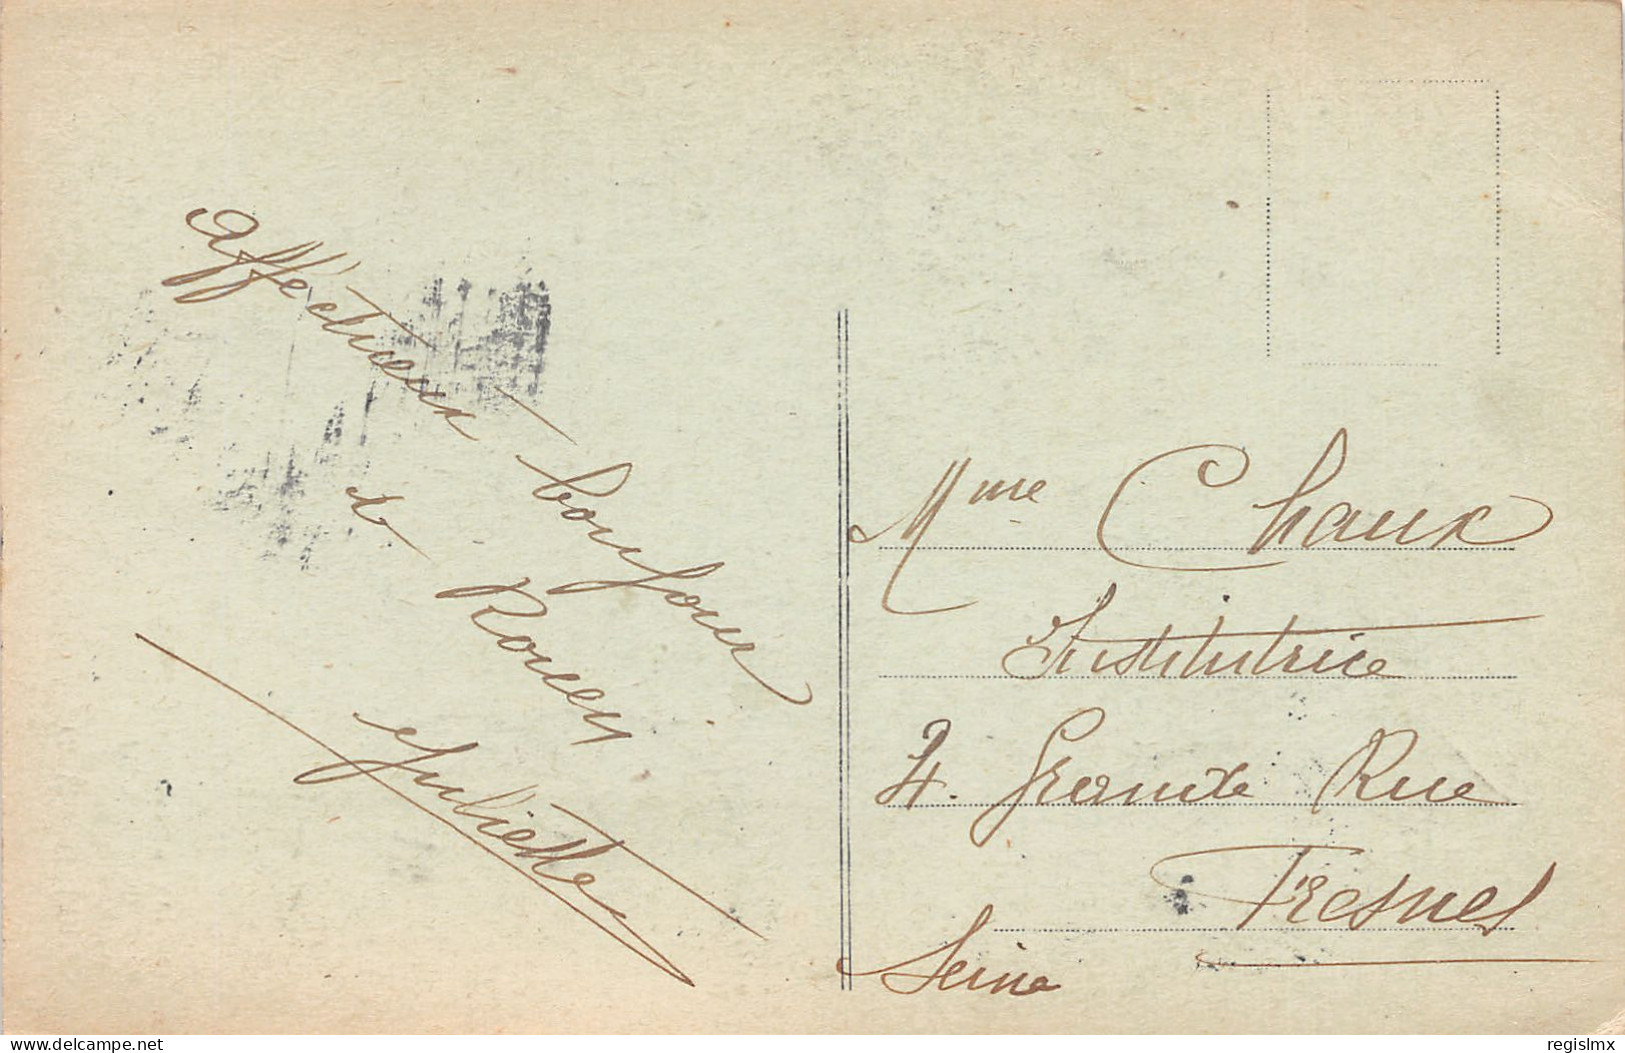 Afféctueux bonjour
de Rouen
Juliette
Mme Chaux
Institutrice
4. Grande Rue
Fresnes
Seine
delcampe.net
regislmx